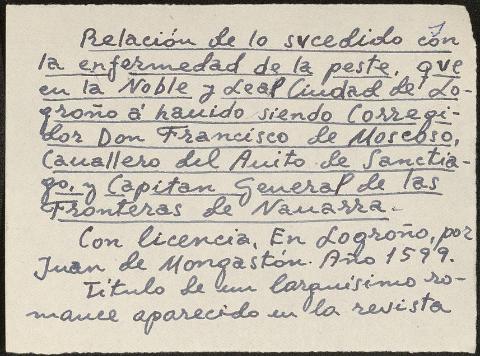 Relación de lo svcedido con
la enfermedad de la peste, qve
en la Noble y Leal Ciudad de Lo-
groño á hauido siendo Corregi-
dor Don Francisco de Moscoso,
Cauallero del Auito de Sanctia-
go, y Capitan General de las
Fronteras de Nauarra.-
Con licencia, En Logroño, por
Juan de Mongastón. Año 1599.
Título de un larguísimo ro-
mance aparecido en la revista